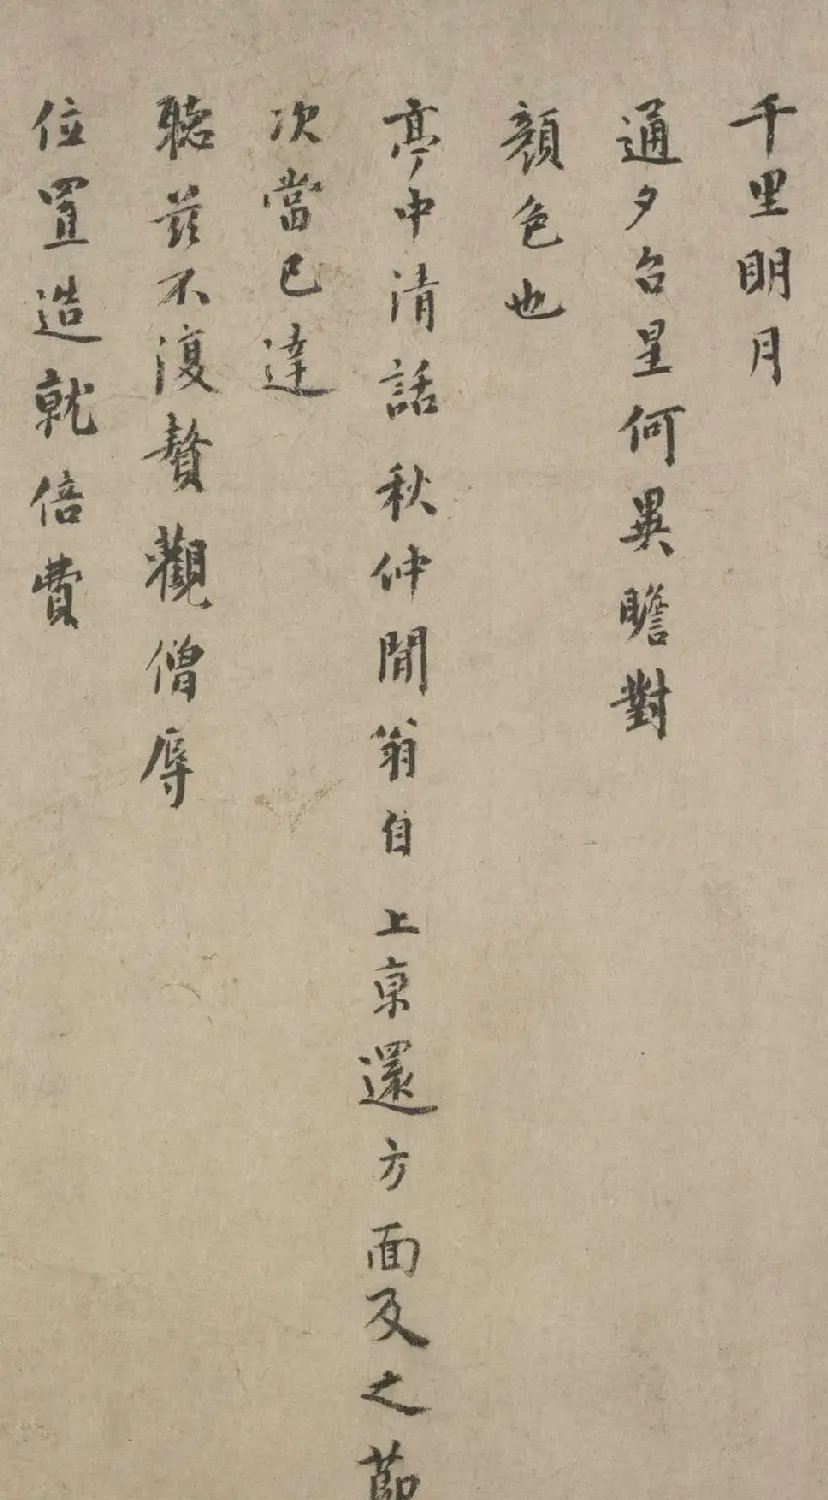 千里明月
通夕台星何異瞻對
顏色也
亭中清話秋仲閒翁自上京還方面及之節
次當已達
聽茲不復贅觀僧辱
位置造就倍費